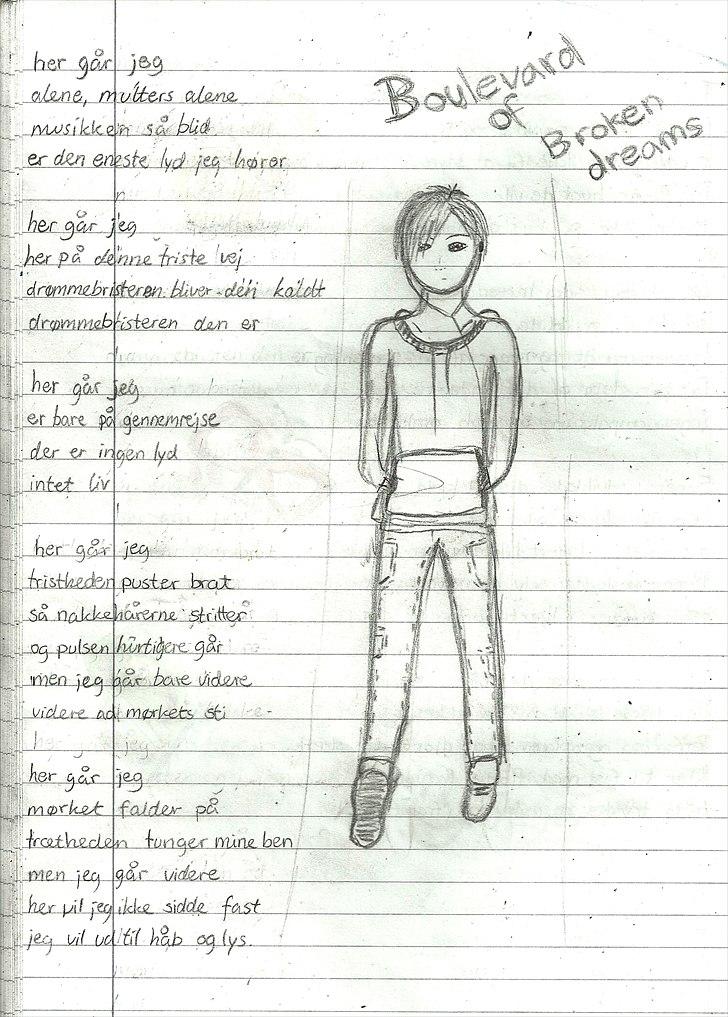 Boulevard
of
Broken
dreams
her går jeg
alene, mutters alene
musikken så blid
er den eneste lyd jeg hører
her går jeg
her på denne triste vej
drømmebristeren bliver den kaldt
drømmebristeren den er
her går jeg
er bare på gennemrejse
der er ingen lyd
intet liv
her går jeg
tristheden puster brat
så nakkehårerne stritter
og pulsen hurtigere går
men jeg går bare videre
videre ad mørkets sti
her går jeg
her går jeg
mørket falder på
trætheden tunger mine ben
men jeg går videre
her vil jeg ikke sidde fast
jeg vil ud til håb og lys.